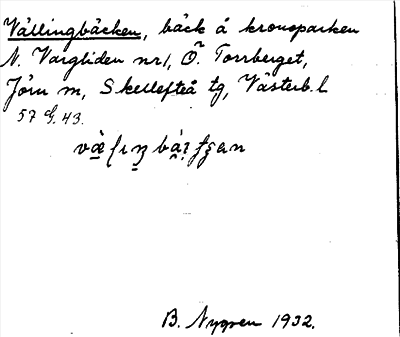 Vällingbäcken, bäck å kronoparken
N. Vargliden nr 1, Ö. Torrberget,
Jörn sn, Skellefteå tg, Västerb. l
57 G. 43.
B. Nygren 1932.